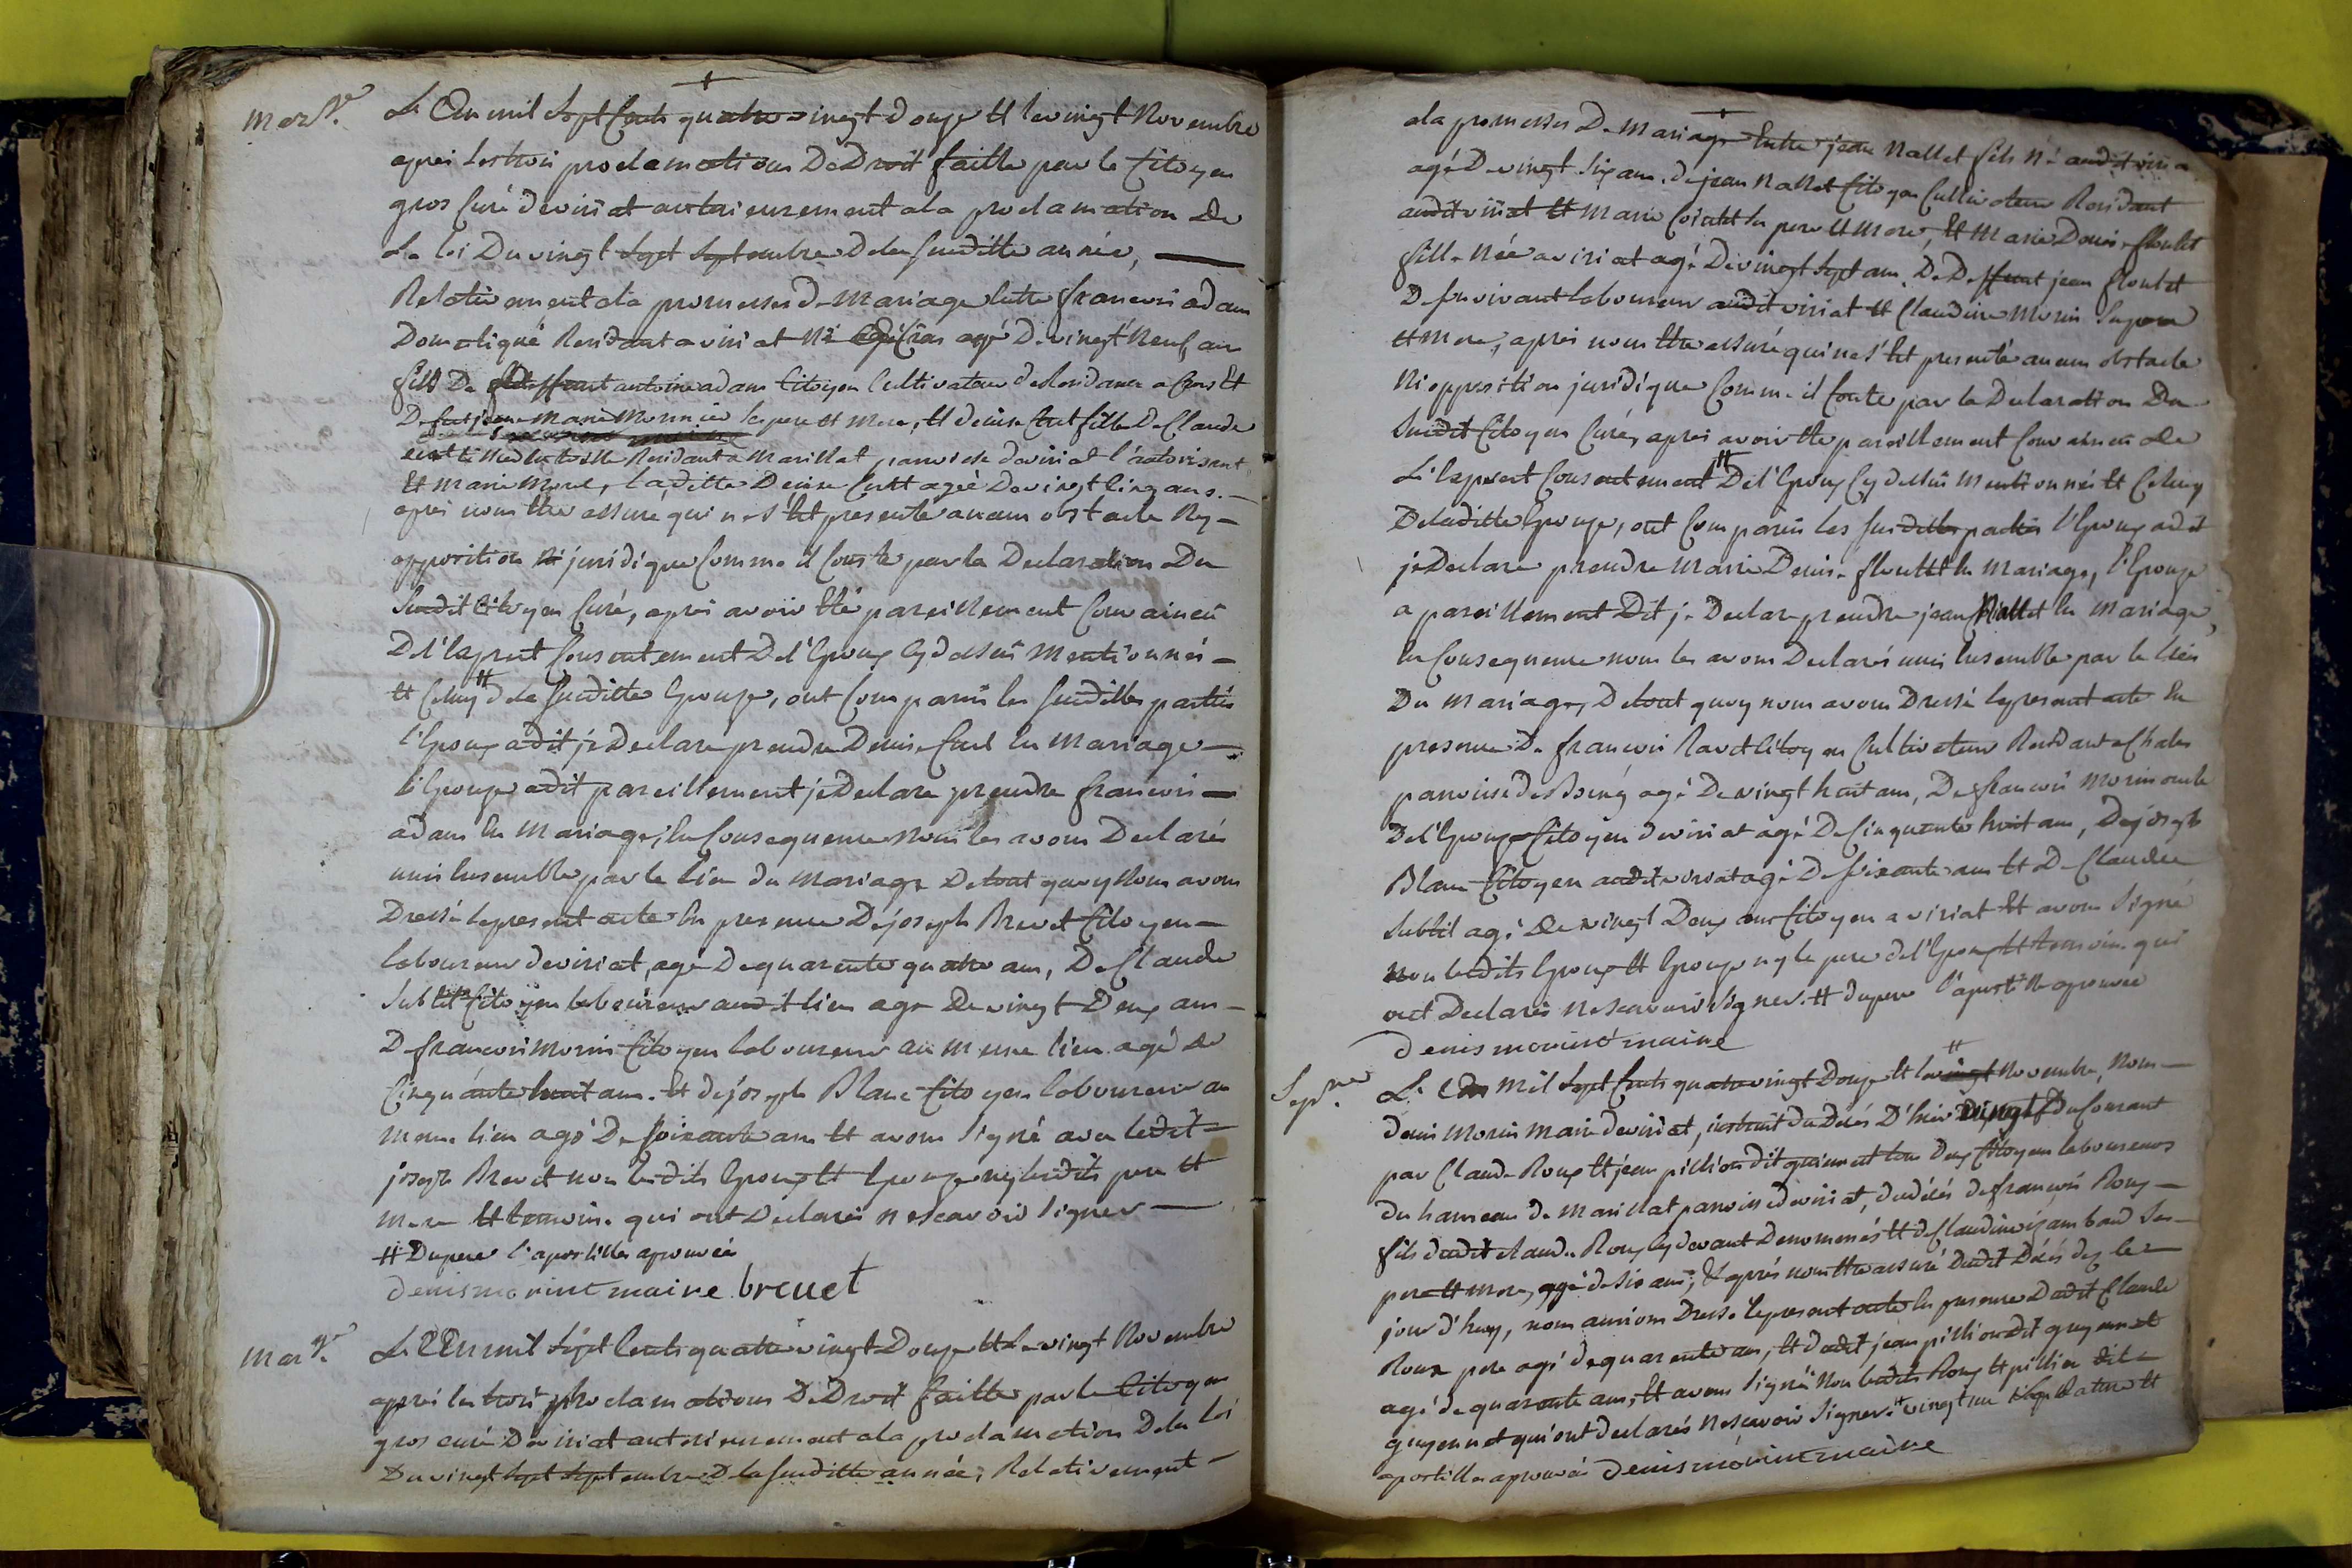 mar.ge
L'an mil sept cents quatre vingt douze et le vingt Novembre
aprés les trois proclamations De Droit faitte par le Citoyen
gros Curé de viriat anterieurement ala proclamation de
La loi Du vingt Sept Septembre de la suditte année,
Relativement ala promesses de mariage entre francois adam
Domestique Residant a viriat Né a Cras agé De vingt Neuf ans
fils De Deffunt antoine adam Citoyen Cultivateur de Residance a Cras Et
De marie Monnier ses pere et mere, et denise fille De Claude
Residant a Marillat paroisse de viriat l'autorisant
Et marie Morel, laditte Denise agée De vingt Cinq ans.
aprés nous etre assure qui ne s'est presenté aucun obstacle Ny
opposition juridique Comme il Conste par la Declaration Du
Susdit Citoyen Curé, aprés avoir été pareillement Convaincu
De l'exprest Consentement De l'Epoux Cy dessus mentionnés
et Celuy de la suditte Epouze, ont Comparus les susdittes parties
l'Epoux adit je Declare prendre Denise en mariage
l'Epouze adit pareillement je Declare prendre francois
adam en mariage, en Consequence Nous les avons Declarés
unis Ensemble par le lien du mariage De tout quoy Nous avons
Dressé le present acte En presence De joseph Brevet Citoyen
laboureur de viriat, agé De quarente quatre ans, De Claude
Subtil Citoyen laboureur audit lieu agé De vingt Deux ans
De francois morin Citoyen laboureur au meme lieu agé de
Cinquante huit ans. Et de joseph Blanc Citoyen laboureur au
meme lieu agé De soixante ans et avons Signé avec ledit
joseph Brevet non lesdits Epoux Et Epouze ny lesdits pere et
mere et temoins qui ont Declarés ne scavoir signer
# Du pere l'apostille aprouvée
denis morin maire brevet
mar.ge
L'an mil Sept Cents quattre vingt Douze et Le vingt Novembre
aprés les trois proclamations De Droit faitte par le Citoyen
gros curé De viriat anterieurement ala proclamation De la loi
Du vingt Sept Septembre De la suditte année, Relativement
ala promesses De mariage Entre jean Nallet fils Né audit viriat
agé De vingt Six ans. de jean Nallet Citoyen Cultivateur Residant
audit viriat et marie ses pere et mere, Et marie Denise floutet
fille Née a viriat agé De vingt Sept ans De Deffunt jean floutet
De son vivant laboureur audit viriat et Claudine Morin Ses pere
et mere, aprés nous etre assuré qui ne s'est presenté aucun obstacle
Ni opposition juridique Comme il Conste par la Declaration Du
Susdit Citoyen Curé, aprés avoir été pareillement Convaincu De
L'exprest Consentement # De l'Epoux Cy dessus mentionnés et Celuy
De laditte Epouze, ont Comparus les susdittes parties l'Epoux adit
je Declare prendre marie Denise floutet En mariage, l'Epouze
a pareillement Dit je Declare prendre jean Nallet En mariage,
En Consequence nous les avons Declarés unis Ensemble par le lien
Du mariage, De tout quoy nous avons Dressé le present acte En
presence De francois Ravet Citoyen Cultivateur Residant a Chales
paroisse de agé De vingt huit ans, De francois morin oncle
De l'Epouze Citoyen de viriat agé De Cinquante huit ans, De joseph
Blanc Citoyen audit viriat agé De soixante ans et De Claude
Subtil agé De vingt Deux ans Citoyen a viriat Et avons Signé
non lesdits Epoux et Epouze ny le pere de l'Epoux Et temoins qui
ont Declarés ne scavoir Signer. # du pere l'apostille aprouvée
denis morin maire
Sep.re
L'an mil Sept Cents quatre vingt Douze et le vingt # Novembre, Nous
denis Morin Maire de viriat, instruit du Décés D'hier vingt Du Courant
par Claude Roux et jean pillion dit guienet tous Deux Citoyens laboureurs
du hameau de Marillat paroisse de viriat, du décés de francois Roux
fils dudit claude Roux cy devant Denommés et de Claudine jambond ses
pere et mere, agé de six ans, Et aprés nous etre assuré Dudit Décés dez le
jour d'huy, nous avions Dressé le present acte En presence Dudit Claude
Roux pere agé de quarente ans, et dudit jean pillion dit guyennet
agé de quarante ans, Et avons Signé non lesdits Roux et pillion dit
guyennet qui ont declarés ne scavoir Signer. # vingt un
apostille aprouvée denis morin maire